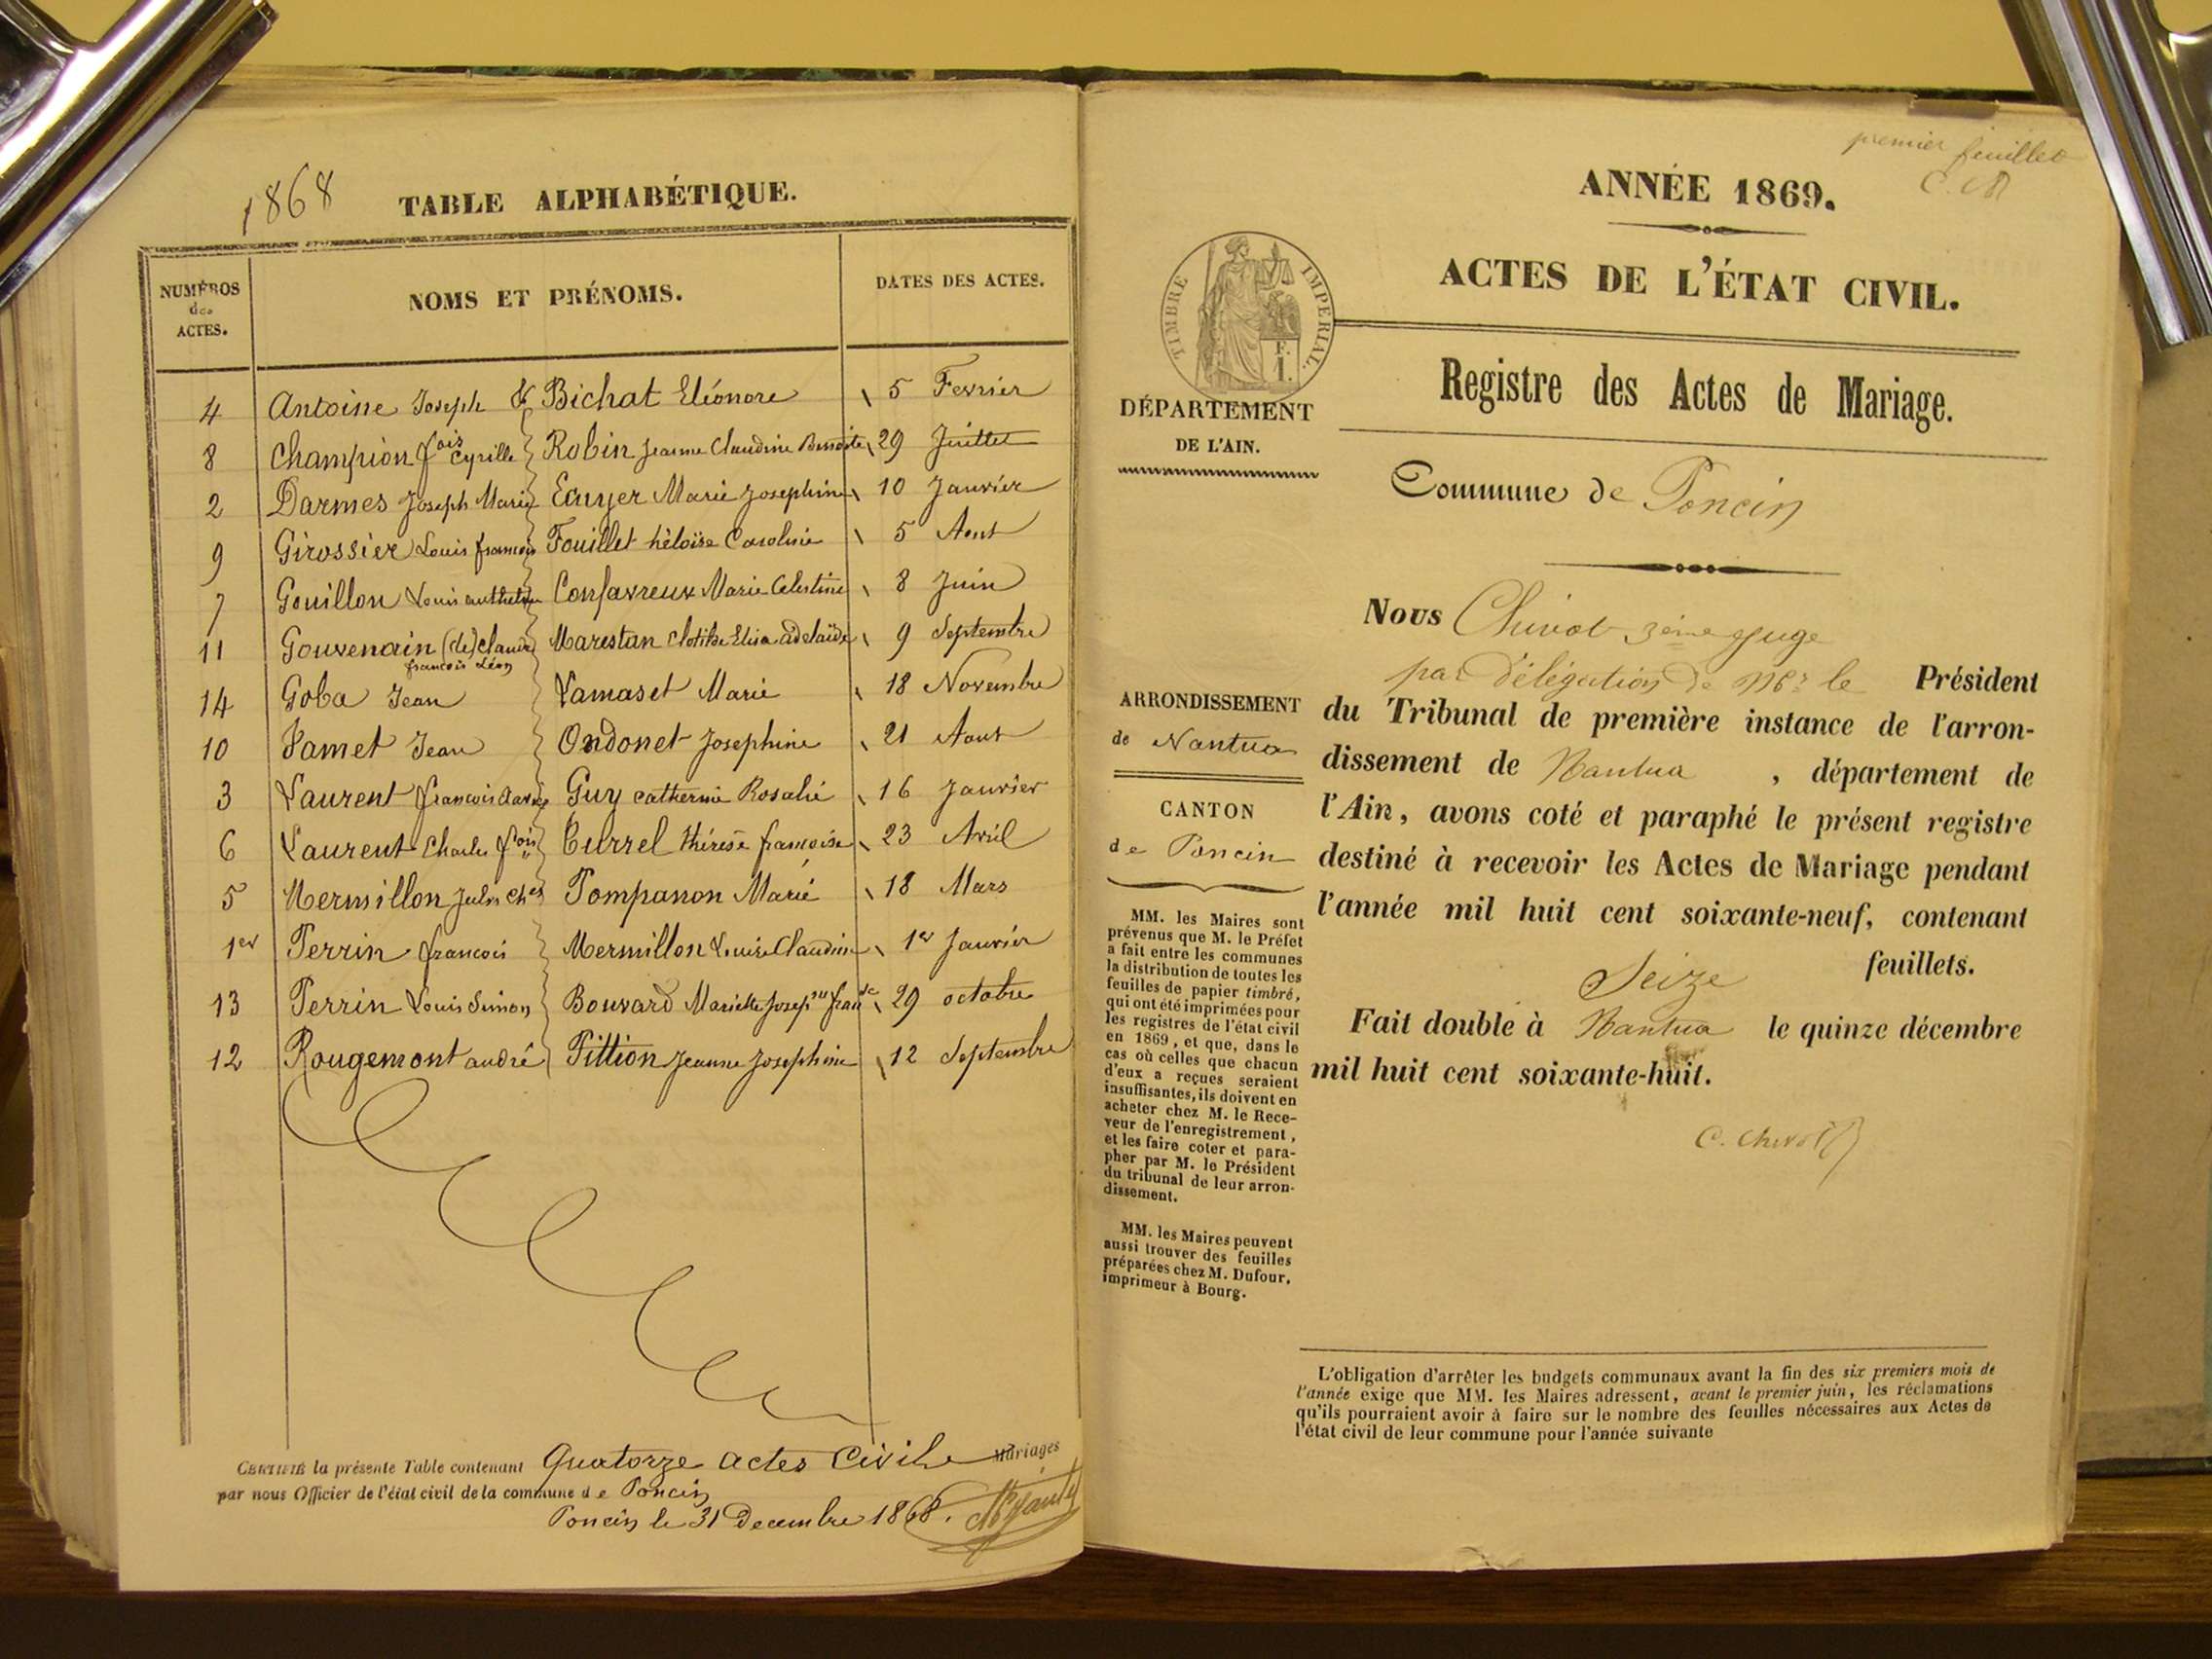 1868 TABLE ALPHABÉTIQUE.
NUMÉROS
des
ACTES.
NOMS ET PRÉNOMS.
DATES DES ACTES.
4 Antoine Joseph & Bichat Eléonore 5 Fevrier
8 Champion fois Cyrille Robin Jeanne Claudine Benoite 29 Juillet
2 Darmes Joseph Marie Ecuyer Marie Josephine 10 Janvier
9 Girossier Louis francois Fouillet hèloïse Caroline 5 Aout
7 Gouillon Louis anthelme Confavreux Marie Celestine 8 Juin
11 Gouvenain (de) claude Marestan Clotilde Elisa adelaïde 9 Septembre
francois Léon
14 Goba Jean Lamaset Marie 18 Novembre
10 Jamet Jean Ondonet Josephine 21 Aout
3 Laurent francois Guy catherine Rosalie 16 Janvier
6 Laurent Charles fois Currel thérèse francoise 23 Avril
5 Mermillon Jules Ches Pompanon Marie 18 Mars
1er Perrin francois Mermillon Louise Claudine 1er Janvier
13 Perrin Louis Simon Bouvard Mariette 29 octobre
12 Rougemont andré Pittion Jeanne Josephine 12 Septembre
CERTIFIÉ la présente Table contenant Quatorze actes Civils Mariages
par nous Officier de l'état civil de la commune de Poncin
Poncin le 31 Decembre 1868.
premier feuillet
ANNÉE 1869.
ACTES DE L'ÉTAT CIVIL.
TIMBRE IMPERIAL.
F.
1.
Registre des Actes de Mariage.
DÉPARTEMENT
DE L'AIN.
Commune de Poncin
Nous Chivot 3ème Juge
par délégation de Mr le Président
du Tribunal de première instance de l'arron-
dissement de Nantua, département de
l'Ain, avons coté et paraphé le présent registre
destiné à recevoir les Actes de Mariage pendant
l'année mil huit cent soixante-neuf, contenant
Seize feuillets.
Fait double à Nantua le quinze décembre
mil huit cent soixante-huit.
C. Chivot
ARRONDISSEMENT
de Nantua
CANTON
de Poncin
MM. les Maires sont
prévenus que M. le Préfet
a fait entre les communes
la distribution de toutes les
feuilles de papier timbré,
qui ont été imprimées pour
les registres de l'état civil
en 1869, et que, dans le
cas où celles que chacun
d'eux a reçues seraient
insuffisantes, ils doivent en
acheter chez M. le Rece-
veur de l'enregistrement,
et les faire coter et para-
pher par M. le Président
du tribunal de leur arron-
dissement.
MM. les Maires peuvent
aussi trouver des feuilles
préparées chez M. Dufour,
imprimeur à Bourg.
L'obligation d'arrêter les budgets communaux avant la fin des six premiers mois de
l'année exige que MM. les Maires adressent, avant le premier juin, les réclamations
qu'ils pourraient avoir à faire sur le nombre des feuilles nécessaires aux Actes de
l'état civil de leur commune pour l'année suivante